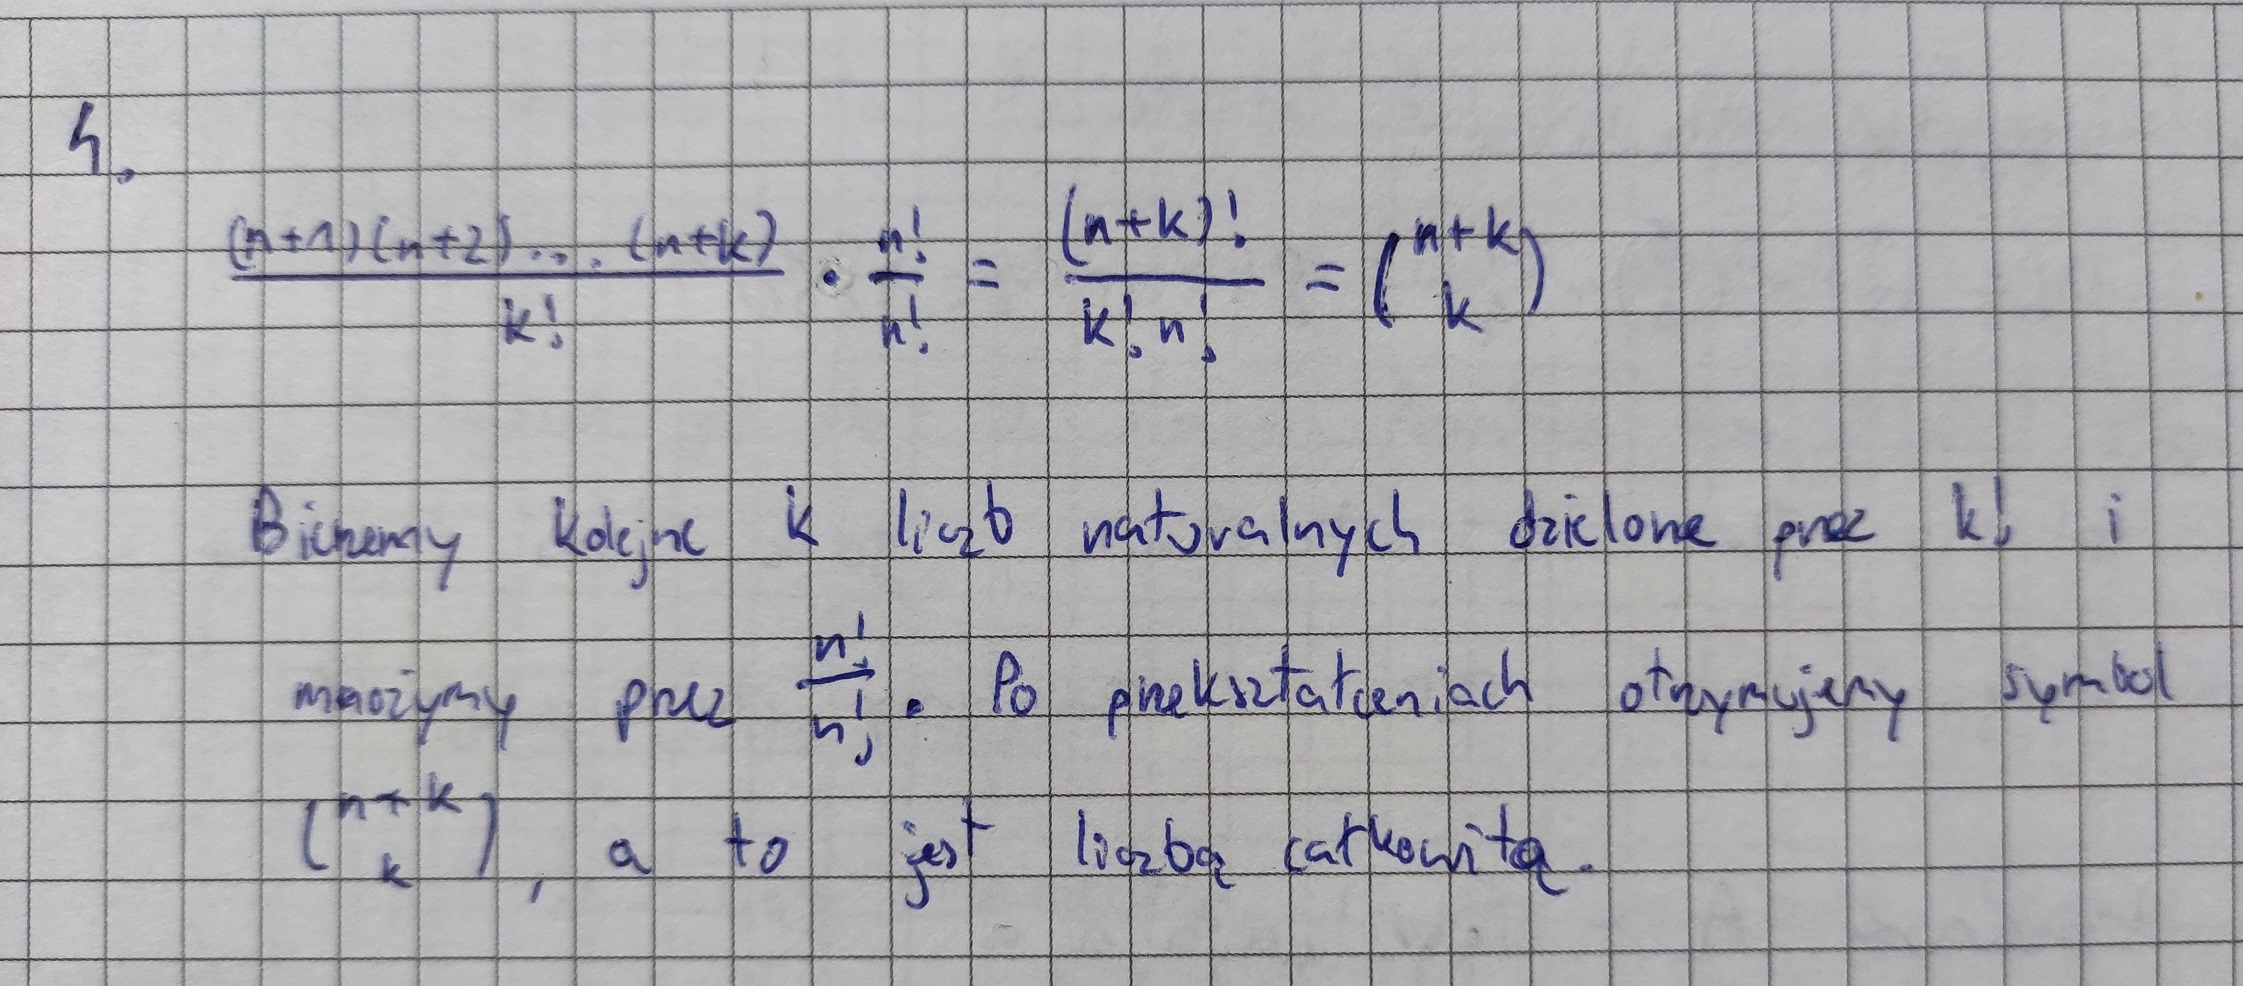 4.
\frac{(n+1)(n+2)... (n+k)}{k!} \cdot \frac{n!}{n!} = \frac{(n+k)!}{k! n!} = \binom{n+k}{k}
Bierzemy kolejne k liczb naturalnych dzielone przez k! i
mnożymy przez \frac{n!}{n!}. Po przekształceniach otrzymujemy symbol
\binom{n+k}{k}, a to jest liczbą całkowitą.